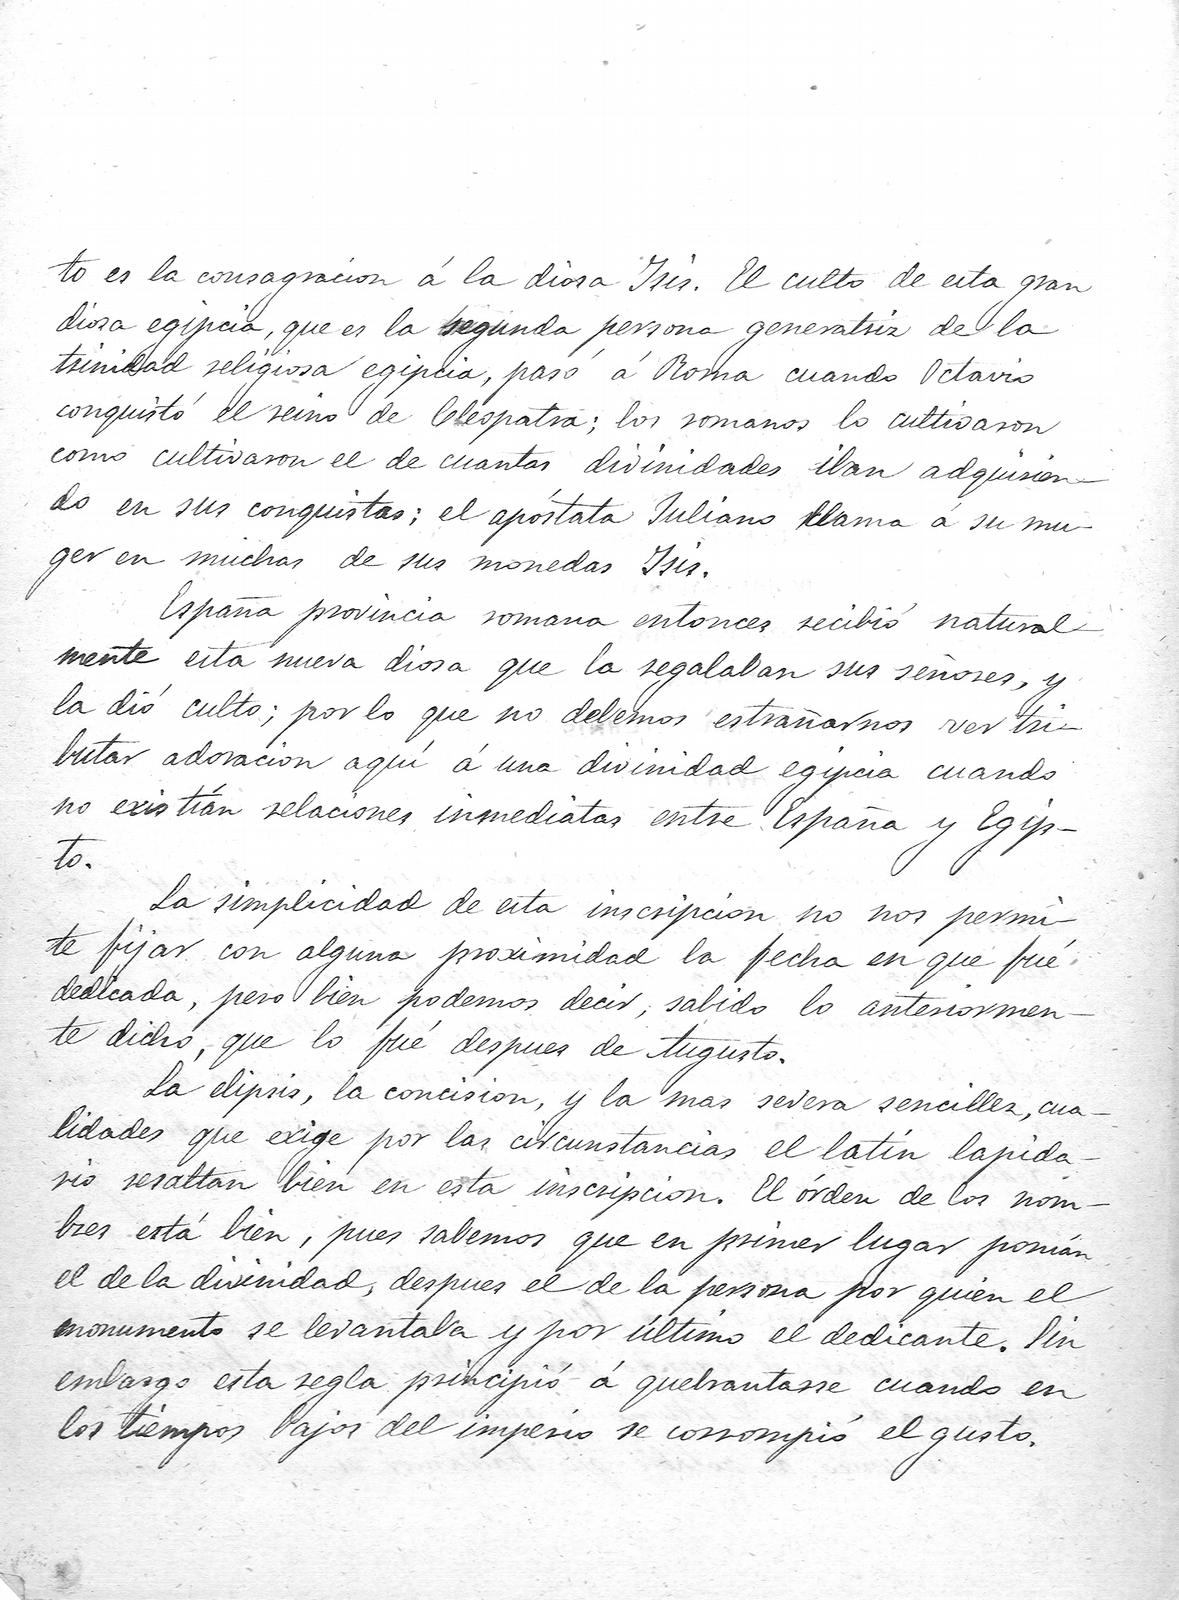 to es la consagracion á la diosa Isis. El culto de esta gran
diosa egipcia, que es la segunda persona generatriz de la
trinidad religiosa egipcia, pasó á Roma cuando Octavio
conquistó el reino de Cleopatra; los romanos lo cultivaron
como cultivaron el de cuantas divinidades iban adquirien-
do en sus conquistas; el apóstata Juliano llama á su mu-
ger en muchas de sus monedas Isis.
España provincia romana entonces recibió natural-
mente esta nueva diosa que la regalaban sus señores, y
la dió culto; por lo que no debemos estrañarnos ver tri-
butar adoracion aquí á una divinidad egipcia cuando
no existían relaciones inmediatas entre España y Egip-
to.
La simplicidad de esta inscripcion no nos permi-
te fijar con alguna proximidad la fecha en que fué
dedicada, pero bien podemos decir, sabido lo anteriormen-
te dicho, que lo fué despues de Augusto.
La elipsis, la concision, y la mas severa sencillez, cua-
lidades que exige por las circunstancias el latín lapida-
rio resaltan bien en esta inscripcion. El órden de los nom-
bres está bien, pues sabemos que en primer lugar ponían
el de la divinidad, despues el de la persona por quien el
monumento se levantaba y por último el dedicante. Sin
embargo esta regla principió á quebrantarse cuando en
los tiempos bajos del imperio se corrompió el gusto.